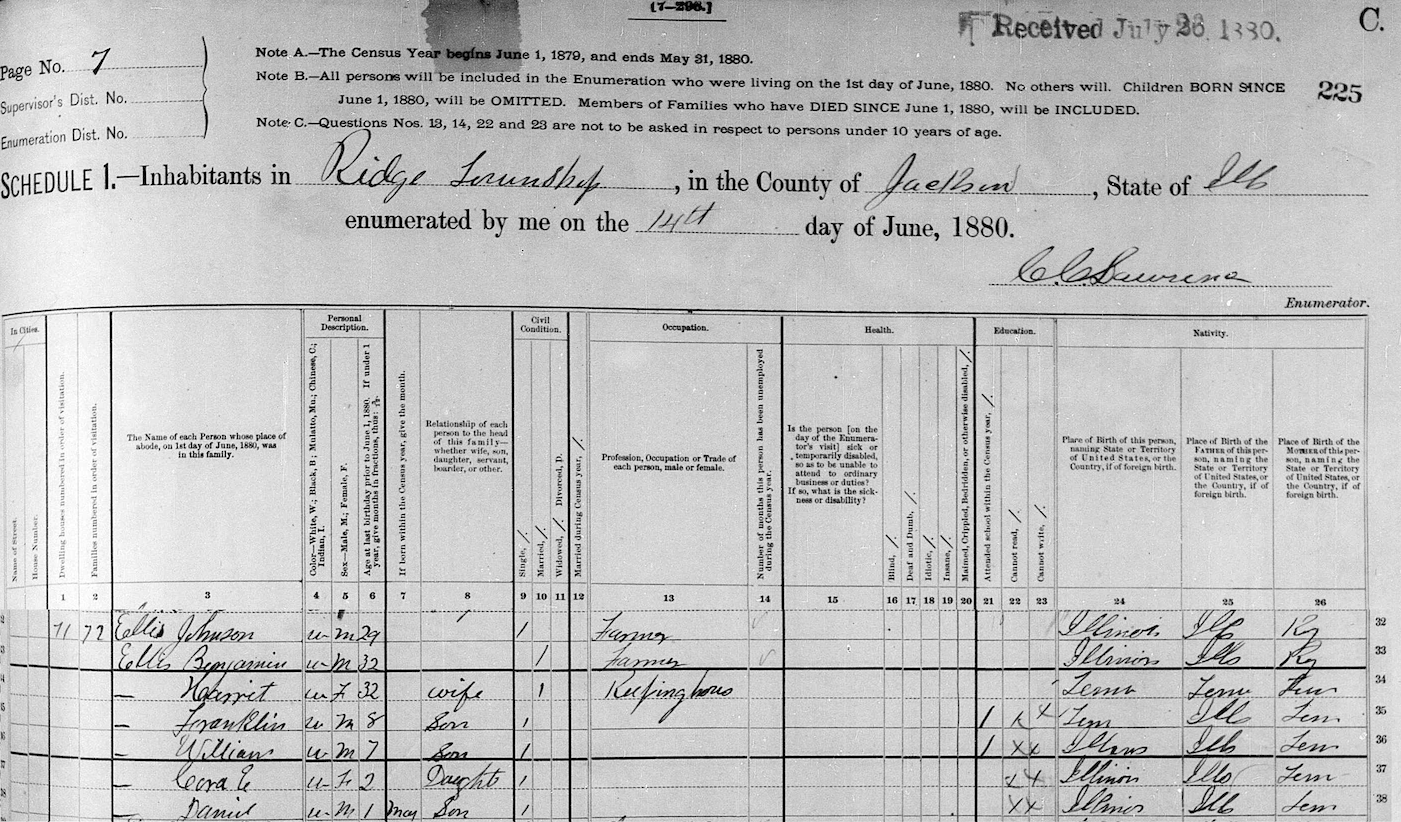 [7-296.]
Received July 26 1880.
C.
Page No. 7
Supervisor's Dist. No.
Enumeration Dist. No.
Note A.—The Census Year begins June 1, 1879, and ends May 31, 1880.
Note B.—All persons will be included in the Enumeration who were living on the 1st day of June, 1880. No others will. Children BORN SINCE
June 1, 1880, will be OMITTED. Members of Families who have DIED SINCE June 1, 1880, will be INCLUDED.
Note C.—Questions Nos. 13, 14, 22 and 23 are not to be asked in respect to persons under 10 years of age.
225
SCHEDULE 1.—Inhabitants in Ridge Township, in the County of Jackson, State of Ills
enumerated by me on the 14th day of June, 1880.
C.C. Lawrence
Enumerator.
In Cities.
Name of Street.
House Number.
Dwelling houses numbered in order of visitation.
Families numbered in order of visitation.
The Name of each Person whose place of
abode, on 1st day of June, 1880, was
in this family.
Personal
Description.
Color—White, W.; Black, B; Mulatto, Mu.; Chinese, C.;
Indian, I.
Sex—Male, M.; Female, F.
Age at last birthday prior to June 1, 1880. If under 1
year, give months in fractions, thus:
If born within the Census year, give the month.
Relationship of each
person to the head
of this family—
whether wife, son,
daughter, servant,
boarder, or other.
Civil
Condition.
Single, /.
Married, /.
Widowed, /. Divorced, D.
Married during Census year, /.
Occupation.
Profession, Occupation or Trade of
each person, male or female.
Number of months this person has been unemployed
during the Census year.
Health.
Is the person [on the
day of the Enumera-
tor's visit] sick or
temporarily disabled,
so as to be unable to
attend to ordinary
business or duties?
If so, what is the sick-
ness or disability?
Blind, /.
Deaf and Dumb, /.
Idiotic, /.
Insane, /.
Maimed, Crippled, Bedridden, or otherwise disabled, /.
Education.
Attended school within the Census year, /.
Cannot read, /.
Cannot write, /.
Nativity.
Place of Birth of this person,
naming State or Territory
of United States, or the
Country, if of foreign birth.
Place of Birth of the
FATHER of this per-
son, naming the
State or Territory
of United States, or
the Country, if of
foreign birth.
Place of Birth of the
MOTHER of this per-
son, naming the
State or Territory
of United States, or
the Country, if of
foreign birth.
1 2 3 4 5 6 7 8 9 10 11 12 13 14 15 16 17 18 19 20 21 22 23 24 25 26
71 72 Ellis Johnson w M 29 / Farmer Illinois Ills Ky 32
Ellis Benjamin w M 32 / Farmer Illinois Ills Ky 33
— Harriet w F 32 wife / Keeping hous Tenn Tenn Tenn 34
— Franklin w M 8 Son / / x x Tenn Ills Tenn 35
— William w M 7 Son / / x x Illinois Ills Tenn 36
— Cora E w F 2 Daught / x x Illinois Ills Tenn 37
— Daniel w M 1 May Son / x x Illinois Ills Tenn 38